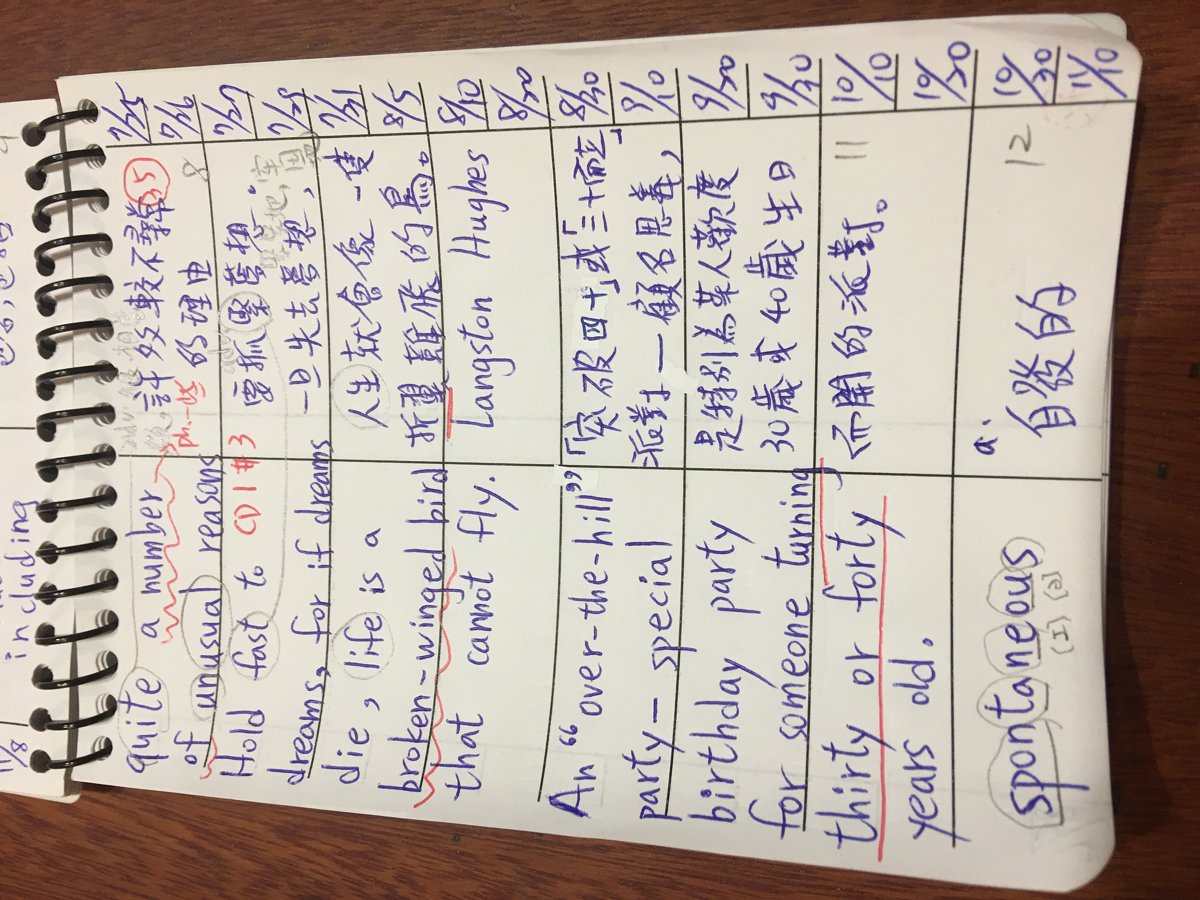 including
11/8
quite a number
of unusual reasons
Hold fast to CD1 #3
dreams, for if dreams
die, life is a
broken-winged bird
that cannot fly.
An "over-the-hill"
party — special
birthday party
for someone turning
thirty or forty
years old.
spontaneous
[I] [ə]
許好較不尋常 5
ph.一些 的理由 8
要抓緊夢想。
一旦失去夢想,
人生就會像一隻
折翼難飛的鳥。
Langston Hughes
「突破四十」或「三十而立」
派對—顧名思義,
是特別為某人歡度
30歲或40歲生日
而開的派對。 11
a.
自發的 12
7/25
7/26
7/27
7/28
7/31
8/5
8/10
8/20
8/30
9/10
9/20
9/30
10/10
10/20
10/30
11/10